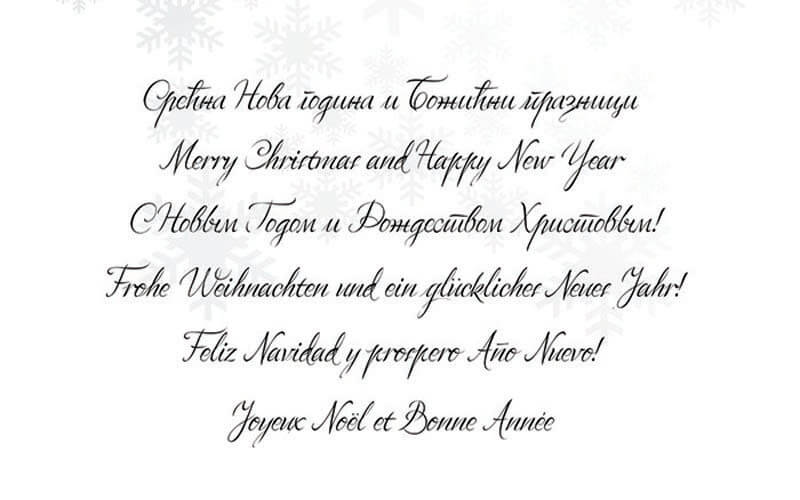 Срећна Нова година и Божићни празници
Merry Christmas and Happy New Year
С Новым Годом и Рождеством Христовым!
Frohe Weihnachten und ein glückliches Neues Jahr!
Feliz Navidad y prospero Año Nuevo!
Joyeux Noël et Bonne Année